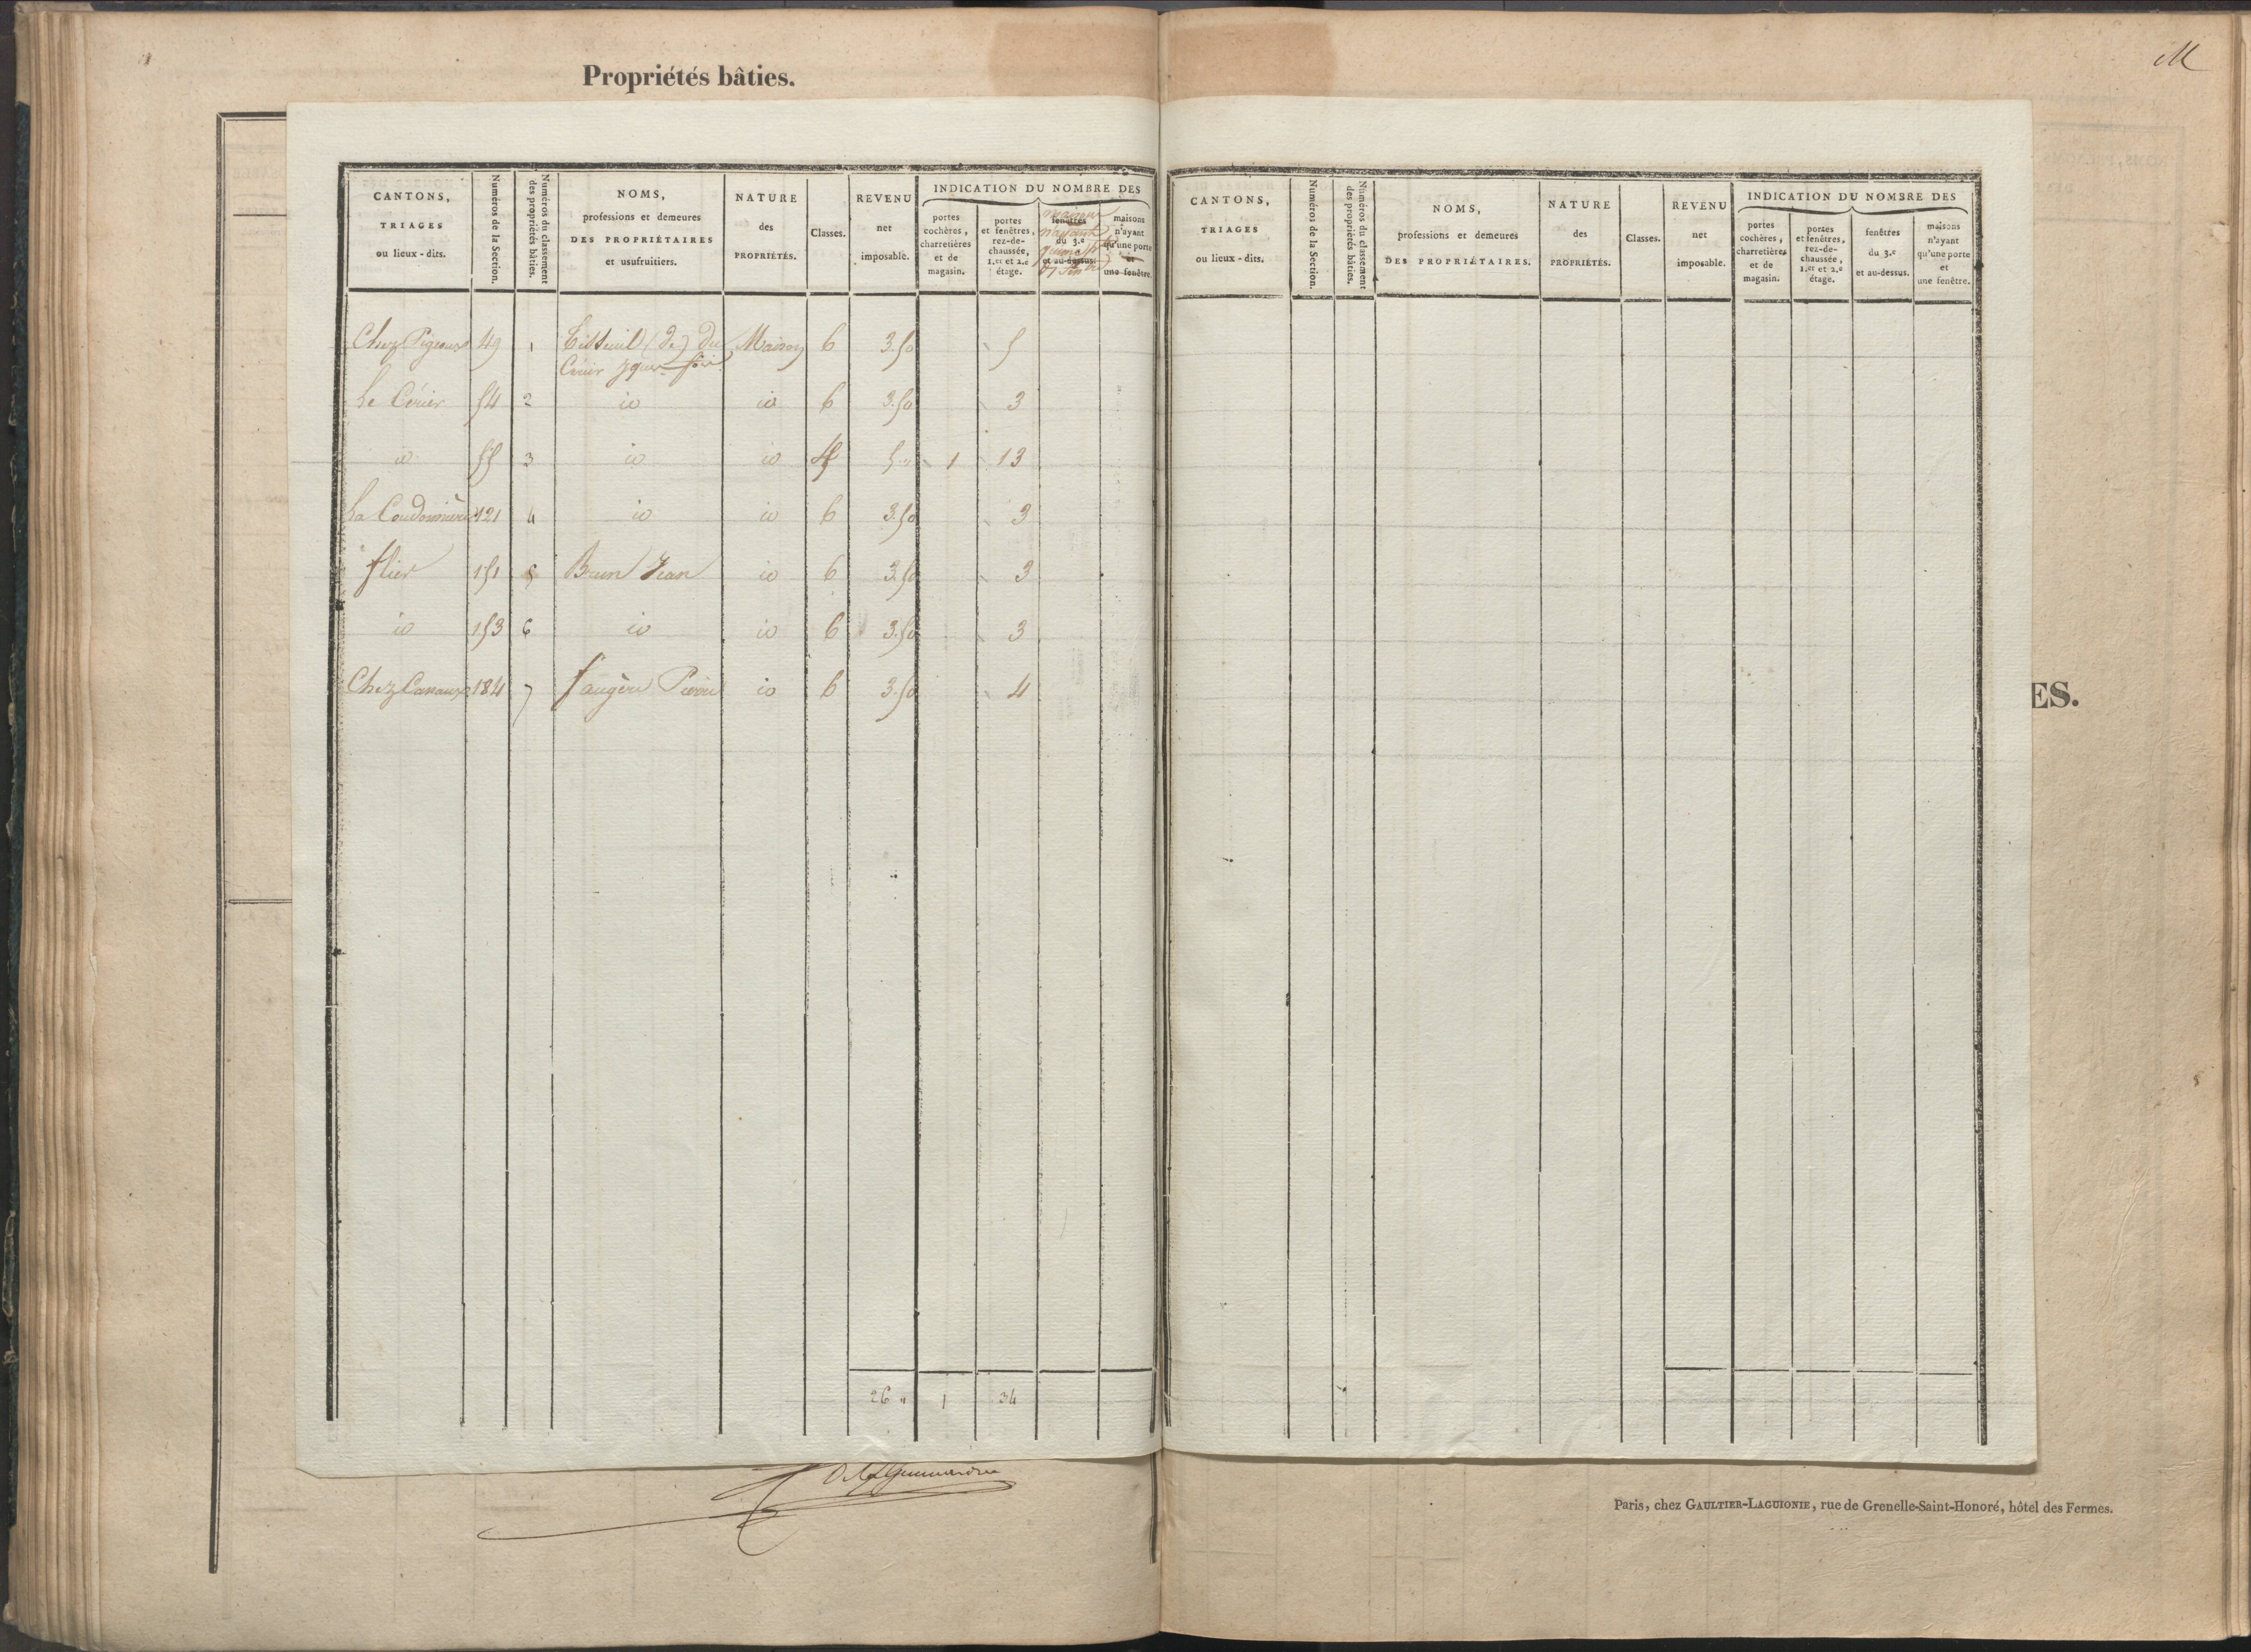 Propriétés bâties.
M
CANTONS,
TRIAGES
ou lieux - dits.
Numéros de la Section.
Numéros du classement
des propriétés bâties.
NOMS,
professions et demeures
DES PROPRIÉTAIRES
et usufruitiers.
NATURE
des
PROPRIÉTÉS.
Classes.
REVENU
net
imposable.
INDICATION DU NOMBRE DES
portes
cochères,
charretières
et de
magasin.
portes
et fenêtres,
rez-de-
chaussée,
1.er et 2.e
étage.
fenêtres
du 3.e
et au-dessus.
maisons
n'ayant
qu'une porte
et
une fenêtre.
Chez Pigeaux 49 1 (de) du Maison 6 3.50 5
Le Cérier 54 2 io io 6 3.50 3
io 55 3 io io 5 5 " 1 13
La 121 4 io io 6 3.50 3
flier 151 5 Brun Jean io 6 3.50 3
io 153 6 io io 6 3.50 3
Chez 184 7 faugère Pierre io 6 3.50 4
26 " 1 34
CANTONS,
TRIAGES
ou lieux - dits.
Numéros de la Section.
Numéros du classement
des propriétés bâties.
NOMS,
professions et demeures
DES PROPRIÉTAIRES.
NATURE
des
PROPRIÉTÉS.
Classes.
REVENU
net
imposable.
INDICATION DU NOMBRE DES
portes
cochères,
charretières
et de
magasin.
portes
et fenêtres,
rez-de-
chaussée,
1.er et 2.e
étage.
fenêtres
du 3.e
et au-dessus.
maisons
n'ayant
qu'une porte
et
une fenêtre.
ES.
Paris, chez GAULTIER-LAGUIONIE, rue de Grenelle-Saint-Honoré, hôtel des Fermes.